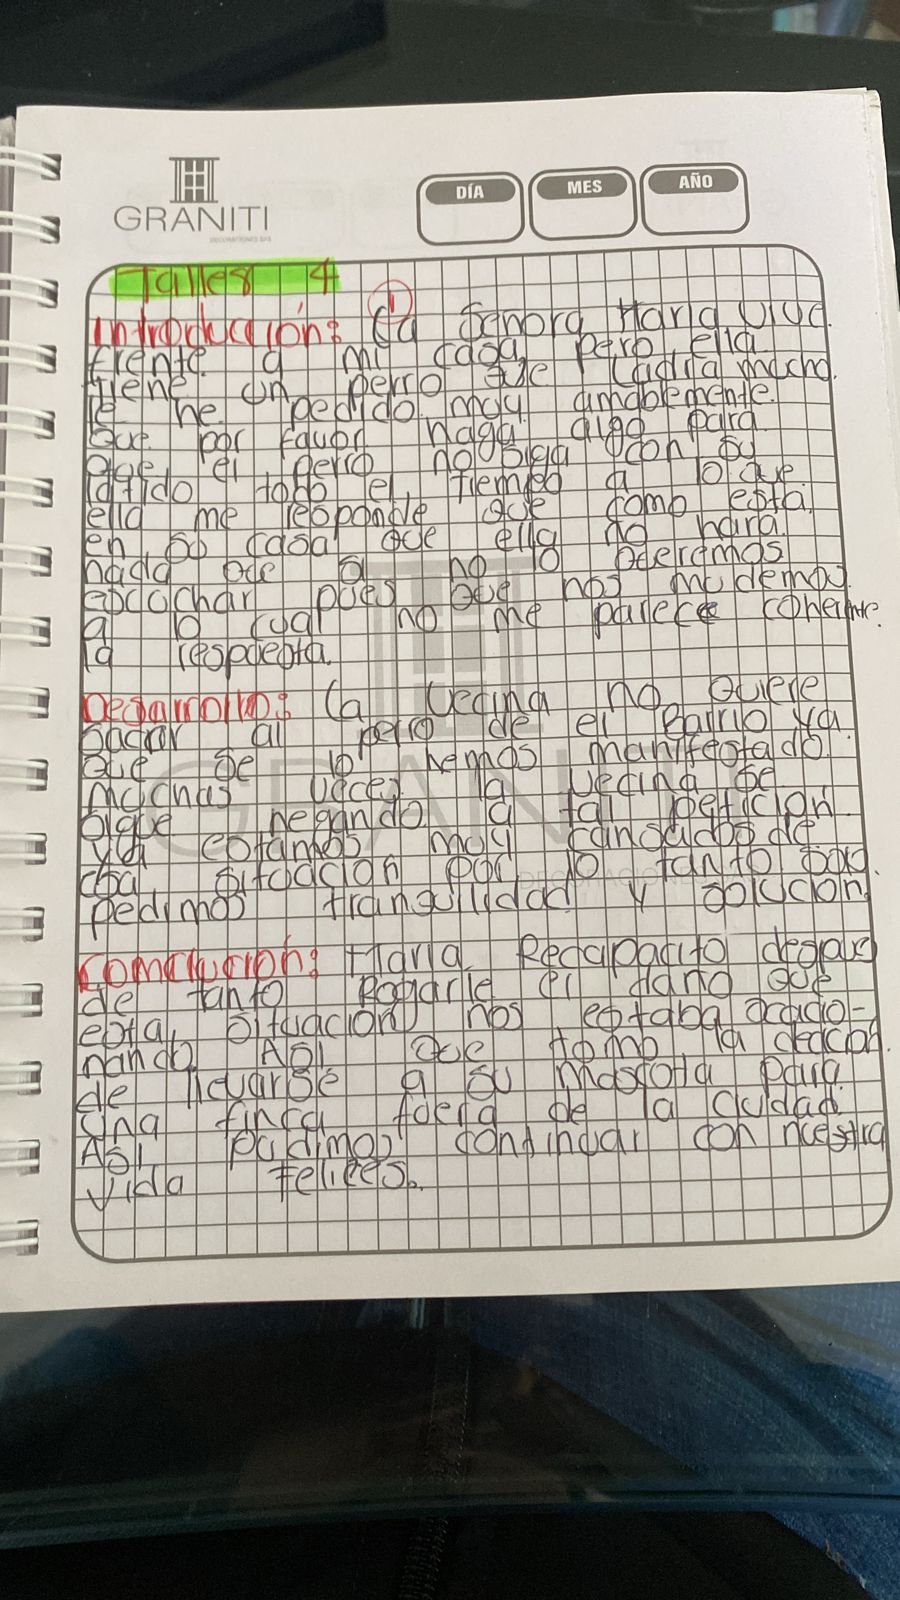 GRANITI
DÍA MES AÑO
Taller 4
1
Introducción: La Señora Maria vive
frente a mi casa, pero ella
tiene un perro que Ladra mucho.
le he pedido muy amablemente.
que por favor haga algo para
que el perro no siga con su
latido todo el tiempo a lo que
ella me responde que como esta
en su casa que ella no hara
nada que si no lo queremos
escuchar pues que nos mudemos
a lo cual no me parece
la respuesta.
Desarrollo: La vecina no quiere
sacar al perro de el Barrio ya
que se lo hemos manifestado
muchas veces la vecina se
sigue negando a tal peticion
ya estamos muy cansados de
esa situacion por lo tanto
pedimos tranquilidad y solucion
Conclucion: Maria Recapacito
de tanto Rogarle el daño que
esta situacion nos estaba ocacio-
nando ASi que tomo la
de llevarse a su mascota para
una finca fuera de la ciudad
ASi pudimos continuar con nuestra
vida felices.